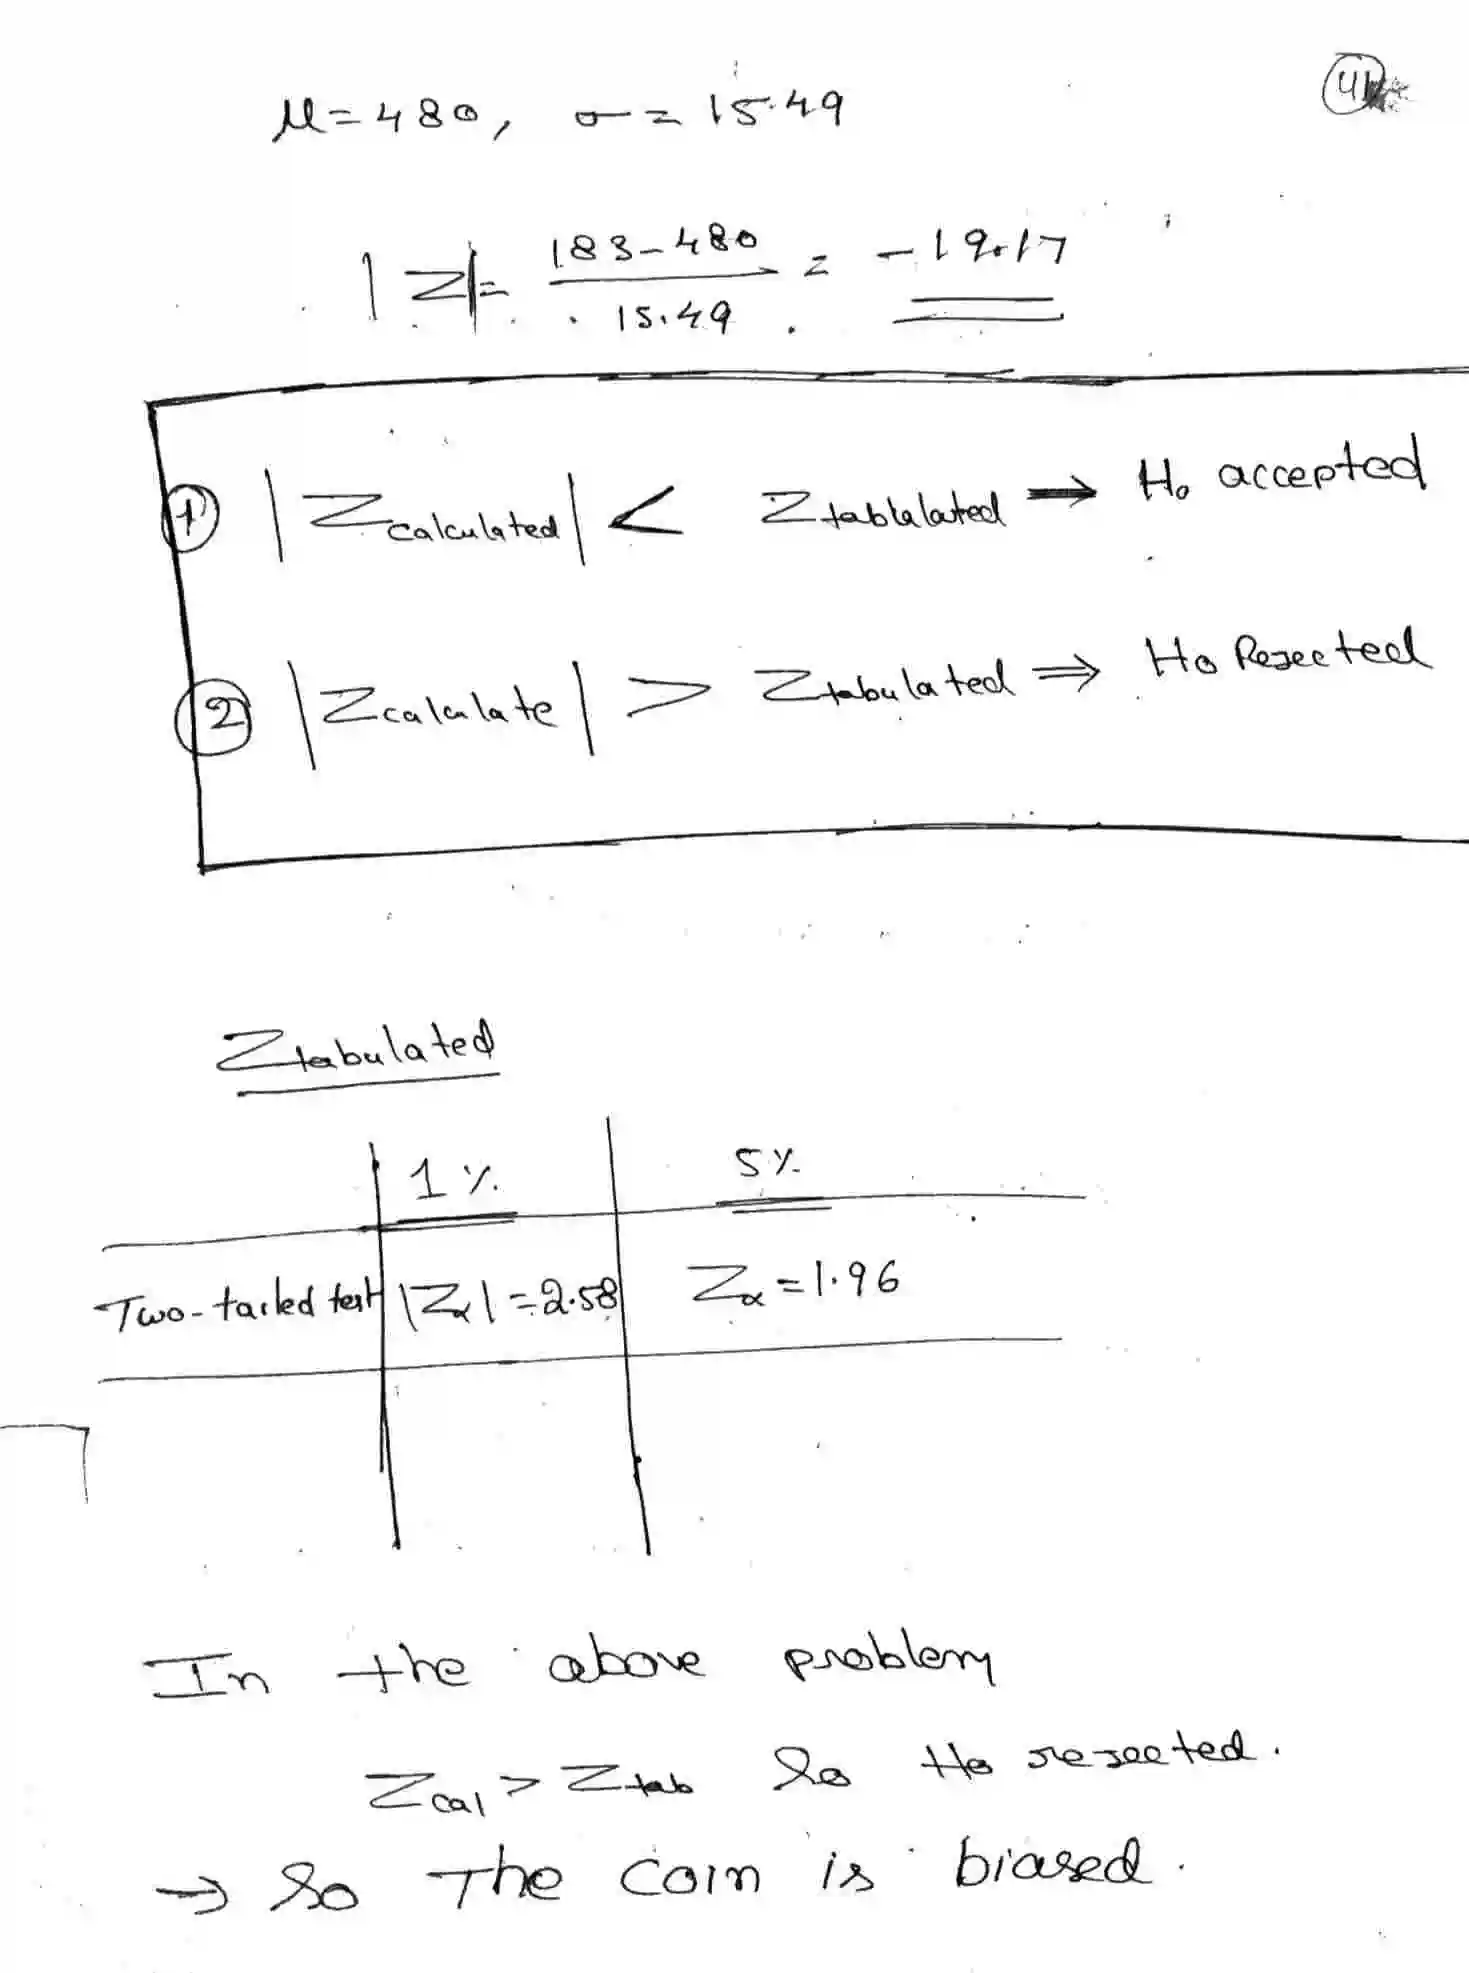 41
μ = 480, σ = 15.49
|Z| = 183-480 / 15.49 = -19.17
① |Zcalculated| < Ztablulated ⇒ H₀ accepted
② |Zcalculate| > Ztabulated ⇒ H₀ Rejected
Ztabulated
1% 5%
Two-tailed test |Zα| = 2.58 Zα = 1.96
In the above problem
Zcal > Ztab So H₀ rejected.
→ So The coin is biased.